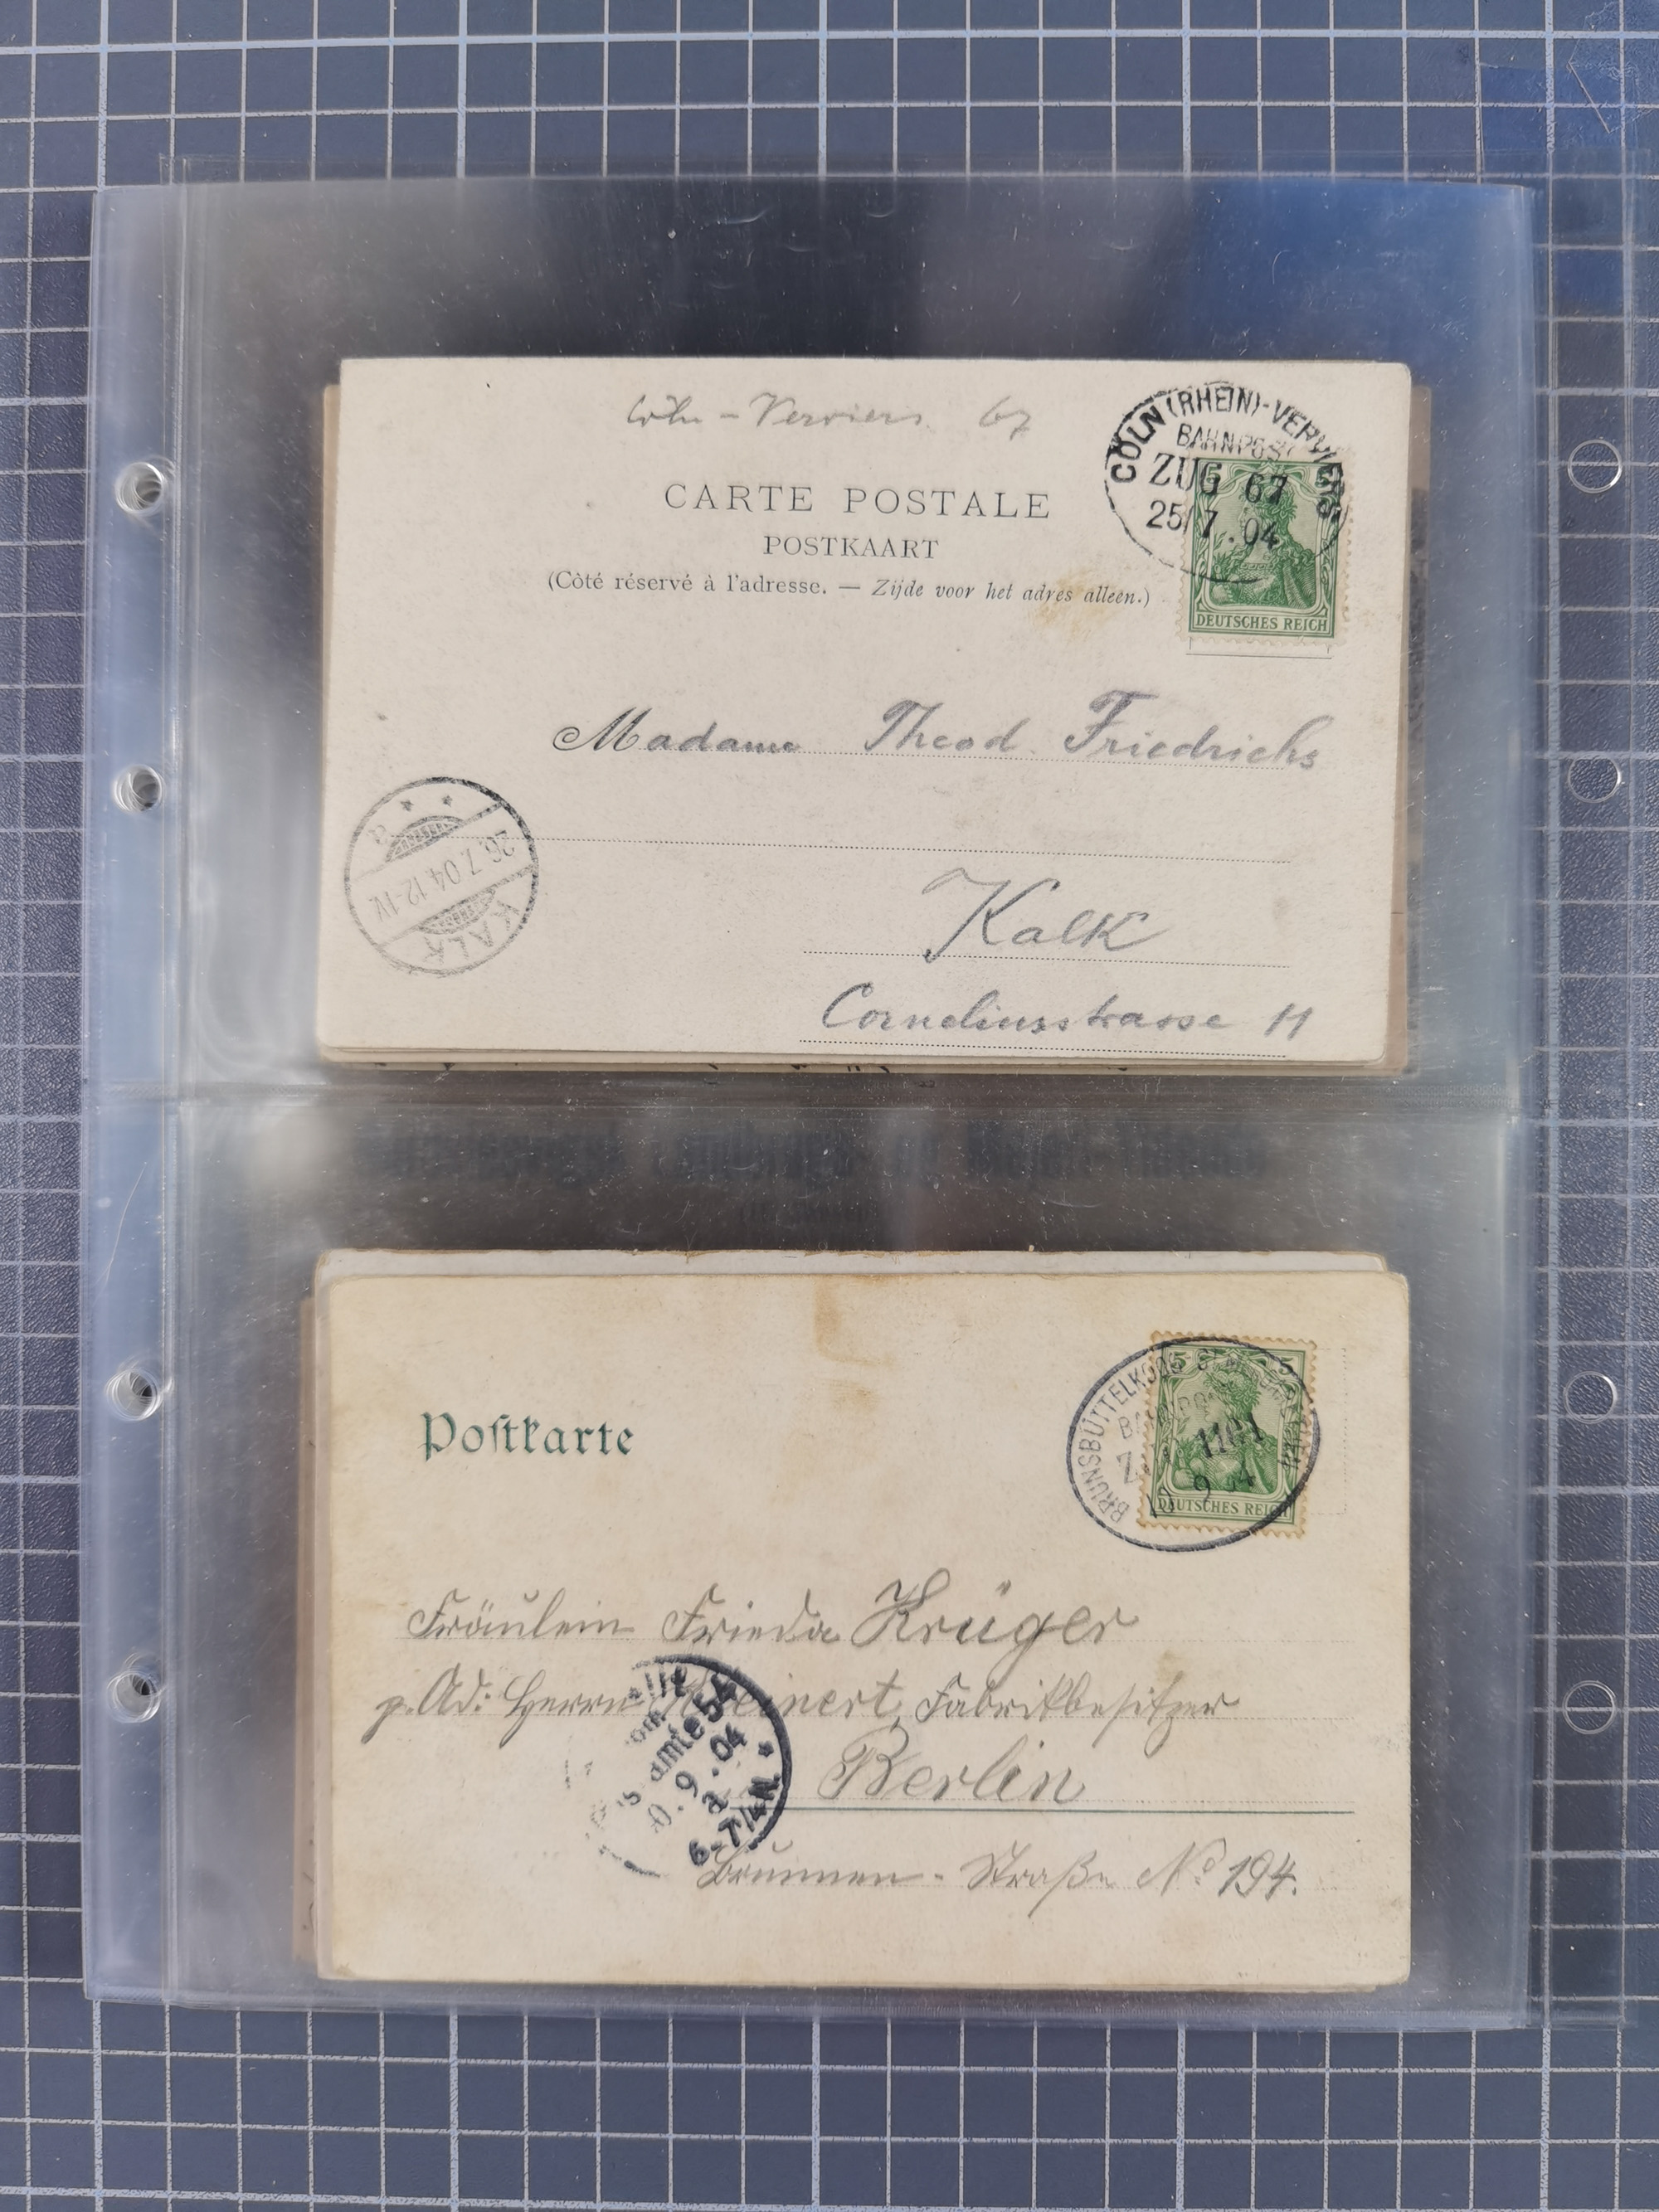 Cöln - Verviers 67
CÖLN (RHEIN)-VERVIERS
BAHNPOST
ZUG 67
25/7.04
5
DEUTSCHES REICH
CARTE POSTALE
POSTKAART
(Côté réservé à l'adresse. — Zijde voor het adres alleen.)
Madame Theod. Friedrichs
KALK
26.7.04.12-1V.
a
Kalk
Corneliusstrasse 11
Postkarte
5 5
BRUNSBÜTTELKOOG
1101
9 4
DEUTSCHES REICH
Fräulein Frieda Krüger
p. Ad: Herrn Fabrikbesitzer
Berlin
54
9.04
a
6-7¼N.
Brunnen-Straße No 194.